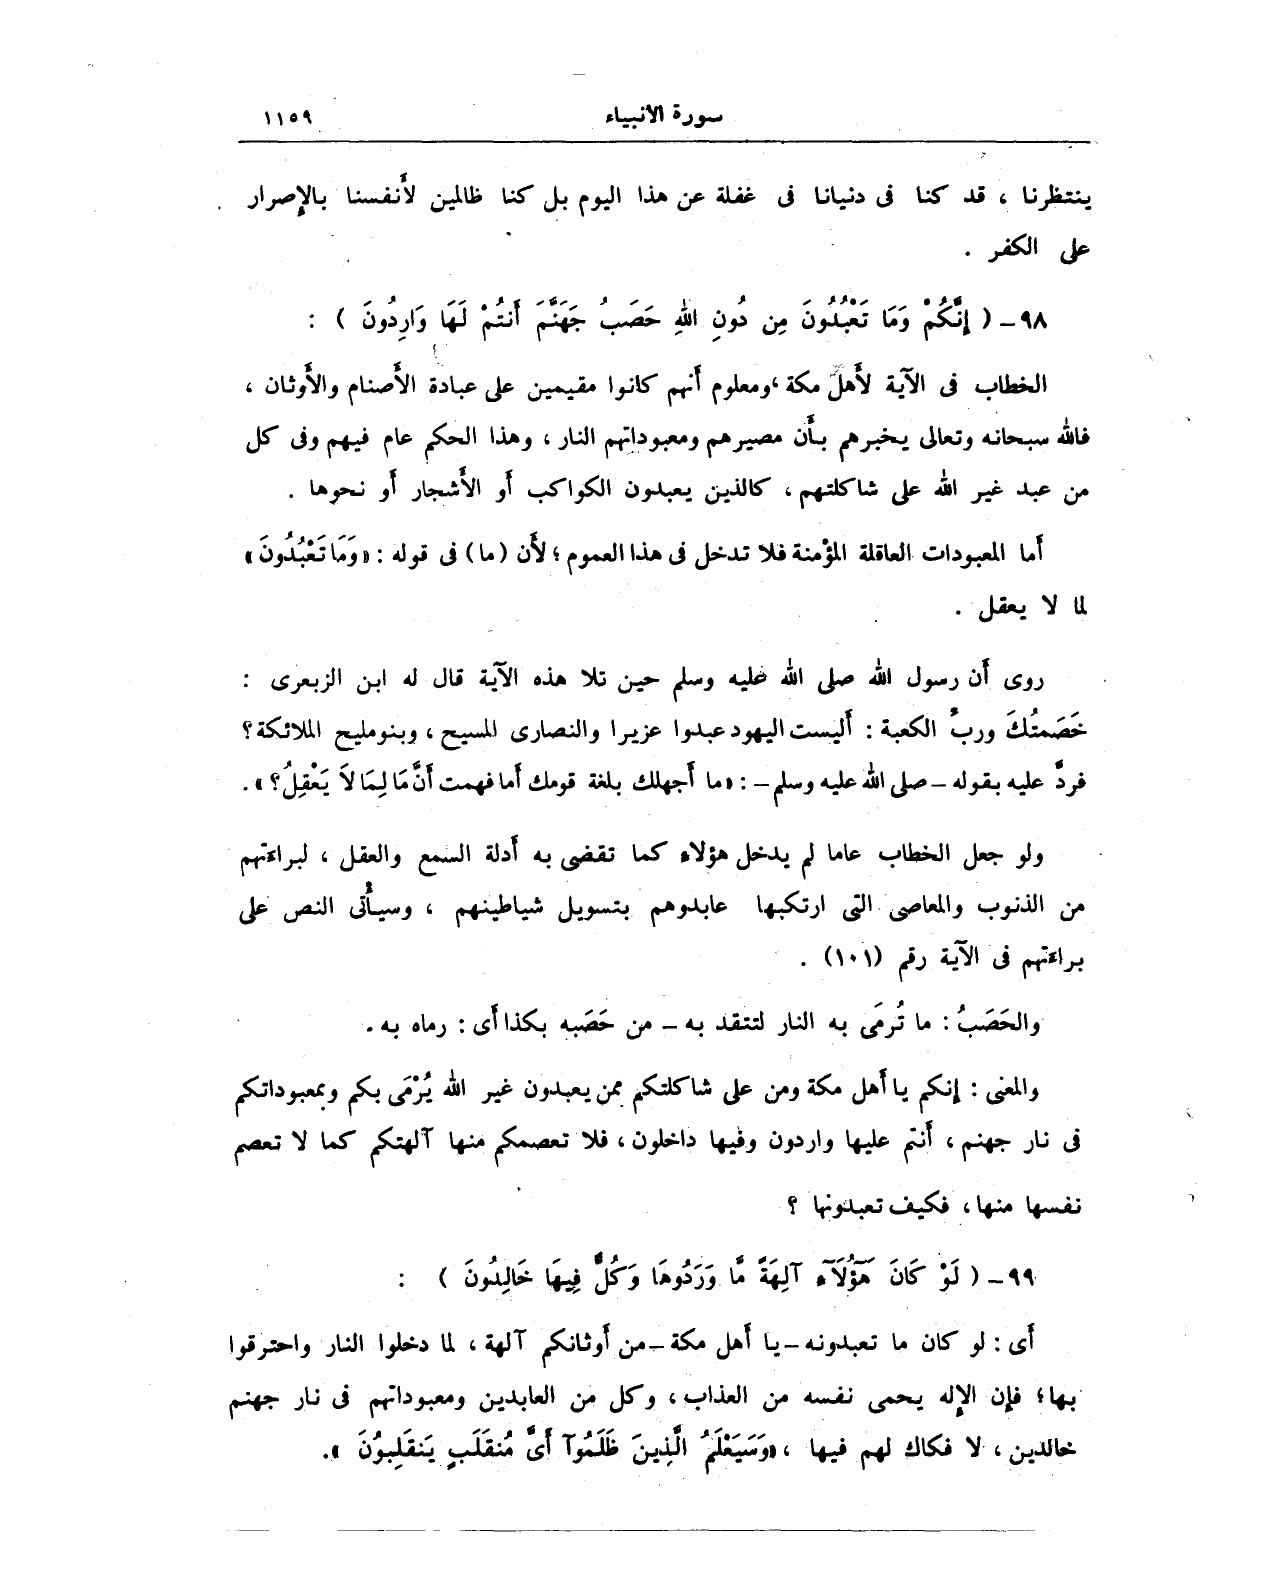 سورة الأنبياء ١١٥٩
ينتظرنا ، قد كنا فى دنيانا فى غفلة عن هذا اليوم بل كنا ظالمين لأنفسنا بالإصرار
على الكفر .
٩٨ – ( إِنَّكُمْ وَمَا تَعْبُدُونَ مِن دُونِ اللهِ حَصَبُ جَهَنَّمَ أَنتُمْ لَهَا وَارِدُونَ ) :
الخطاب فى الآية لأهل مكة ، ومعلوم أنهم كانوا مقيمين على عبادة الأصنام والأوثان ،
فالله سبحانه وتعالى يخبرهم بأن مصيرهم ومعبوداتهم النار ، وهذا الحكم عام فيهم وفى كل
من عبد غير الله على شاكلتهم ، كالذين يعبدون الكواكب أو الأشجار أو نحوها .
أما المعبودات العاقلة المؤمنة فلا تدخل فى هذا العموم ؛ لأن (ما) فى قوله : «وَمَا تَعْبُدُونَ»
لما لا يعقل .
روى أن رسول الله صلى الله عليه وسلم حين تلا هذه الآية قال له ابن الزبعرى :
خَصَمتُكَ وربِّ الكعبة : أليست اليهود عبدوا عزيرا والنصارى المسيح ، وبنو مليح الملائكة ؟
فردَّ عليه بقوله – صلى الله عليه وسلم – : «ما أجهلك بلغة قومك أما فهمت أَنَّ مَا لِمَا لاَ يَعْقِلُ؟» .
ولو جعل الخطاب عاما لم يدخل هؤلاء كما تقضى به أدلة السمع والعقل ، لبراءتهم
من الذنوب والمعاصى التى ارتكبها عابدوهم بتسويل شياطينهم ، وسيأتى النص على
براءتهم فى الآية رقم (١٠١) .
والحَصَبُ : ما تُرمَى به النار لتتقد به – من حَصَبه بكذا أى : رماه به .
والمعنى : إنكم يا أهل مكة ومن على شاكلتكم ممن يعبدون غير الله يُرْمَى بكم وبمعبوداتكم
فى نار جهنم ، أنتم عليها واردون وفيها داخلون ، فلا تعصمكم منها آلهتكم كما لا تعصم
نفسها منها ، فكيف تعبدونها ؟
٩٩ – ( لَوْ كَانَ هَٓؤُلَآءِ آلِهَةً مَّا وَرَدُوهَا وَكُلٌّ فِيهَا خَالِدُونَ ) :
أى : لو كان ما تعبدونه – يا أهل مكة – من أوثانكم آلهة ، لما دخلوا النار واحترقوا
بها ؛ فإن الإله يحمى نفسه من العذاب ، وكل من العابدين ومعبوداتهم فى نار جهنم
خالدين ، لا فكاك لهم فيها ، «وَسَيَعْلَمُ الَّذِينَ ظَلَمُوٓا أَىَّ مُنقَلَبٍ يَنقَلِبُونَ » .